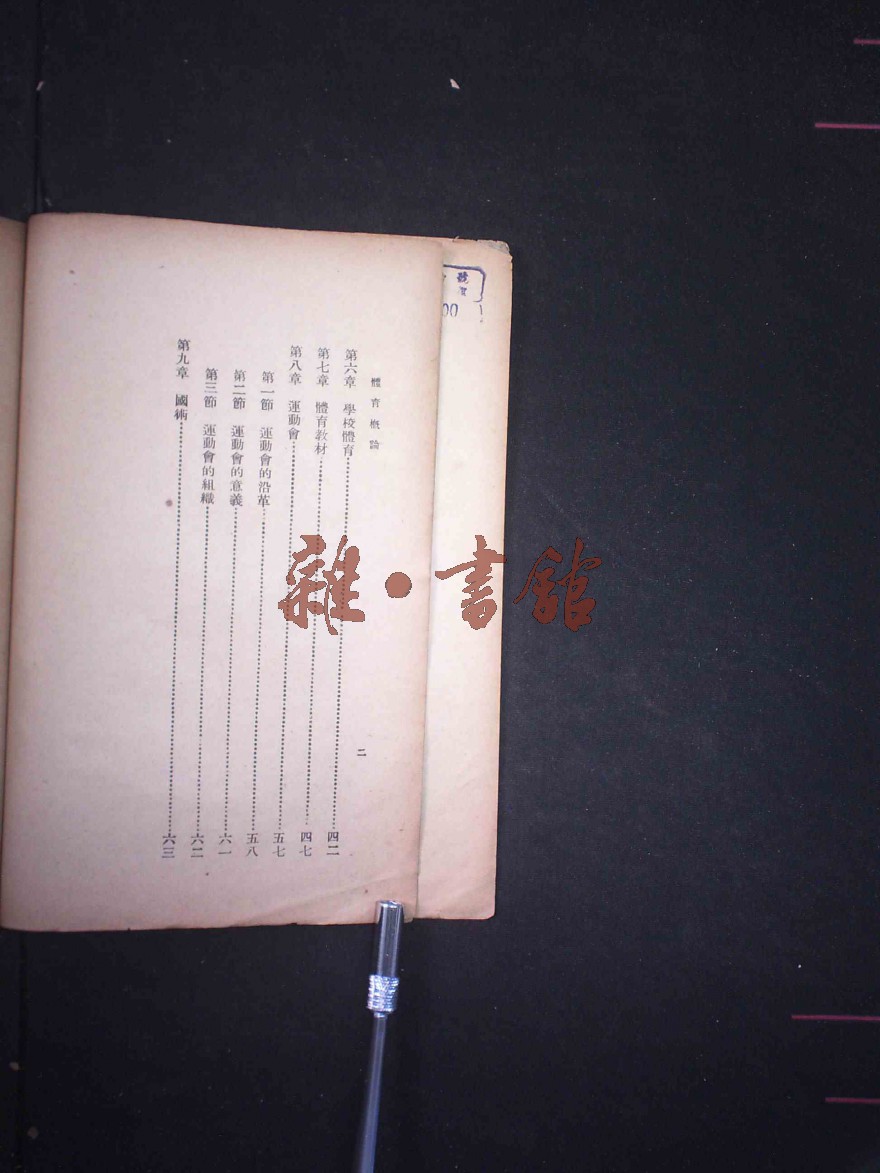 體育概論
二
第六章 學校體育……四二
第七章 體育教材……四七
第八章 運動會……五七
第一節 運動會的沿革……五八
第二節 運動會的意義……六一
第三節 運動會的組織……六二
第九章 國術……六三
雜·書館
號
00